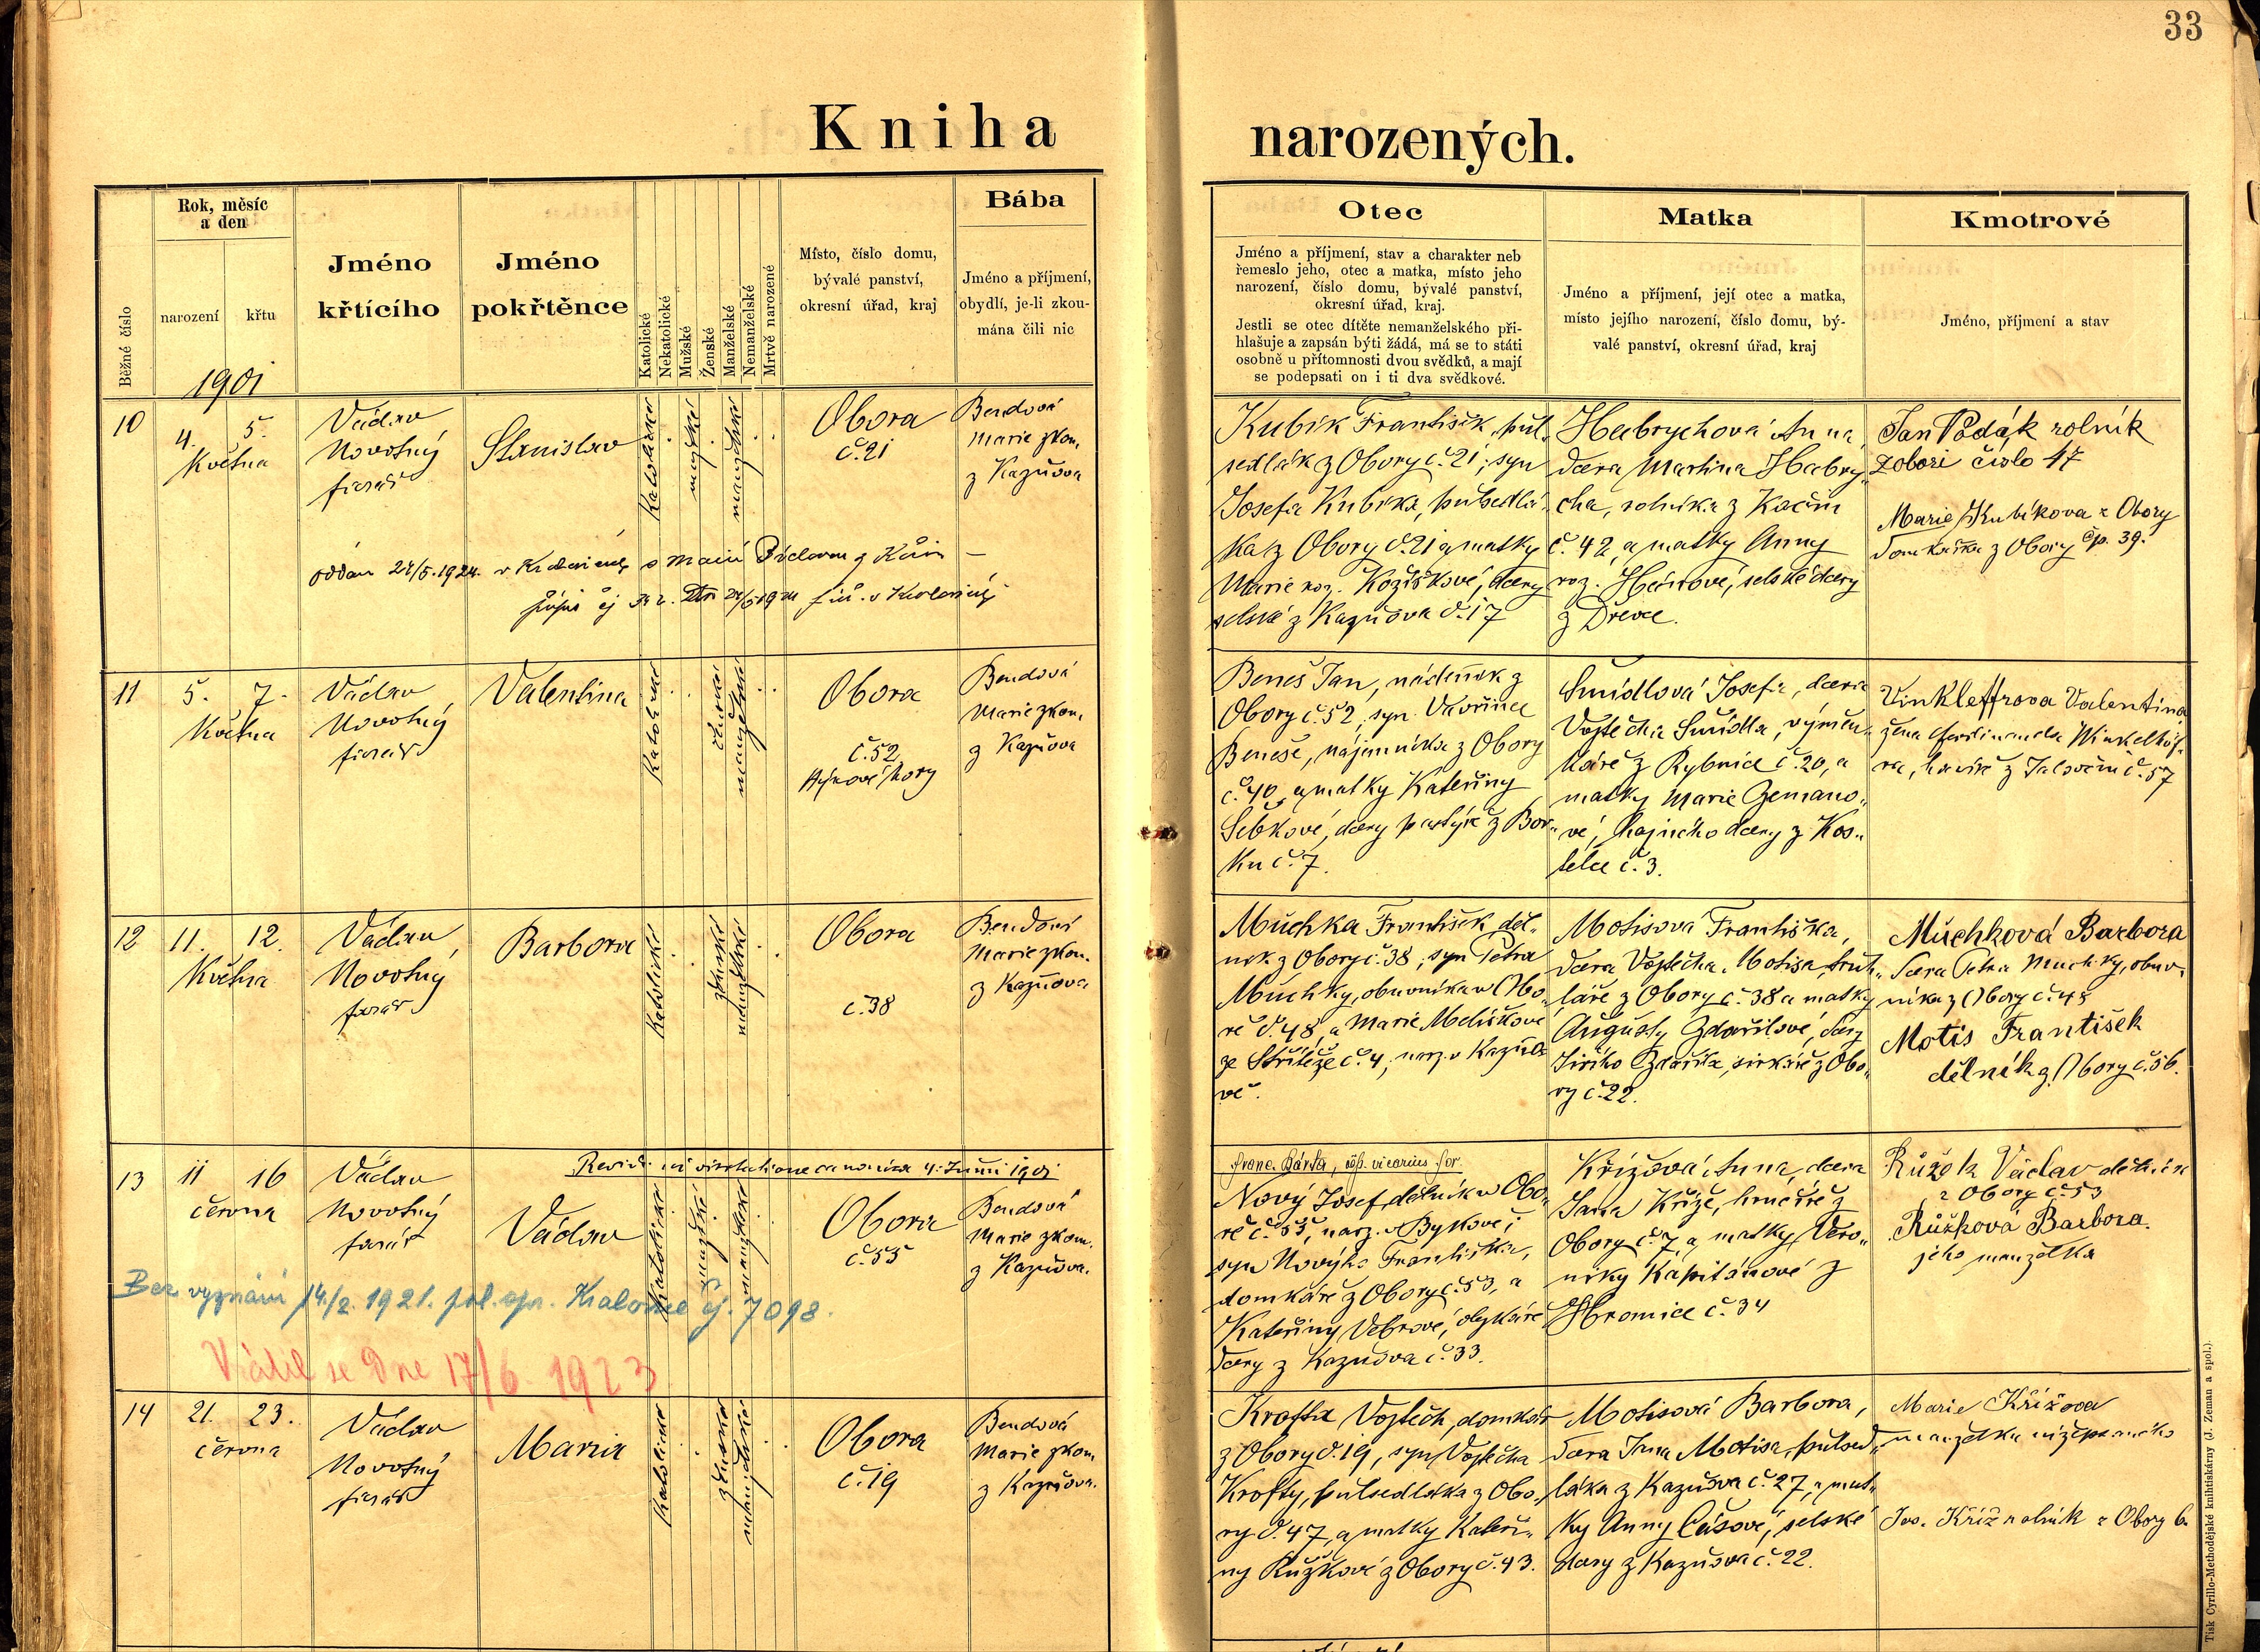 33
Kniha narozených.
Běžné číslo
Rok, měsíc
a den
narození
křtu
1901
Jméno
křtícího
Jméno
pokřtěnce
Katolické
Nekatolické
Mužské
Ženské
Manželské
Nemanželské
Mrtvě narozené
Místo, číslo domu,
bývalé panství,
okresní úřad, kraj
Bába
Jméno a příjmení,
obydlí, je-li zkou-
mána čili nic
Otec
Jméno a příjmení, stav a charakter neb
řemeslo jeho, otec a matka, místo jeho
narození, číslo domu, bývalé panství,
okresní úřad, kraj.
Jestli se otec dítěte nemanželského při-
hlašuje a zapsán býti žádá, má se to státi
osobně u přítomnosti dvou svědků, a mají
se podepsati on i ti dva svědkové.
Matka
Jméno a příjmení, její otec a matka,
místo jejího narození, číslo domu, bý-
valé panství, okresní úřad, kraj
Kmotrové
Jméno, příjmení a stav
10
4. 5.
Května
Václav
Novotný
farář
Stanislav
katolické
mužské
manželské
Obora
č. 21
Bendová
Marie zkou.
z Kazňova
oddán 24/5. 1924. v Kralovicích s Marií
Kubík František, půl-
sedlák z Obory č. 21, syn
Josefa Kubíka, půlsedlá-
ka z Obory č. 21 a matky
Marie roz. Kožíškové, dcery
selské z Kazňova č. 17
Habrychová Anna,
dcera Martina Habry-
cha, rolníka z Kacéřn
č. 42 a matky Anny
roz. Hánové, selské dcery
z Dřevce.
Jan Podák rolník
z obori čislo 47
Marie Kubíkova z Obory
domkařka z Obory čp. 39.
11
5. 7.
Května
Václav
Novotný
farář
Valentina
katolické
ženské
manželské
Obora
č. 52
Hýkové hory
Bendová
Marie zkou.
z Kazňova
Beneš Jan, nádeník z
Obory č. 52, syn Vavřince
Beneše, nájemníka z Obory
č. 40, a matky Kateřiny
Šebkové, dcery pastýře z Bor-
ku č. 7.
Šmídlová Josefa, dcera
Vojtěcha Šmídla, výměn-
káře z Rybnice č. 20, a
matky Marie Zemano-
vé, hajného dcery z Kos-
telce č. 3.
Vinkleffrova Valentina
žena Ferdinanda Winkelhöf-
ra, havíře z Jalovčin č. 57
12
11. 12.
Května
Václav
Novotný
farář
Barbora
katolické
ženské
manželské
Obora
č. 38
Bendová
Marie zkou.
z Kazňova
Muchka František, děl-
ník z Obory č. 38, syn Petra
Muchky, obuvníka v Obo-
ře č. 48, a Marie Meliškové
ze Střítěže č. 4, narz. v Kazňo-
vě.
Motisová Františka,
dcera Vojtěcha Motisa, truh-
láře z Obory č. 38 a matky
Augusty Zdařilové, dcery
Jiřího Zdařila, sirkáře z Obo-
ry č. 22.
Muchková Barbora
dcera Petra Muchky, obuv-
níka z Obory č. 48
Motis František
dělník z Obory č. 56.
13
11 16
června
Václav
Novotný
farář
Revid. in visitatione canonica 4. Junii 1901
Franc. Bárta, epp. vicarius for.
Václav
katolické
mužské
manželské
Obora
č. 53
Bendová
Marie zkou.
z Kazňova.
Bez vyznání 14/2. 1921. pol. spr. Kralovice čj. 7098.
Vrátil se Dne 17/6 1923
Nový Josef, dělník v Obo-
ře č. 53, narz. v Bykově,
syn Nového Františka,
domkáře z Obory č. 53, a
Kateřiny Vebrové,
dcery z Kazňova č. 33.
Křížová Anna, dcera
Jana Kříže, hrnčíře z
Obory č. 7, a matky Vero-
niky Kapitánové z
Hromice č. 34
Růžek Václav dělník
z Obory č. 53
Růžková Barbora.
jeho manželka
14
21. 23.
června
Václav
Novotný
farář
Maria
katolické
ženské
manželské
Obora
č. 19
Bendová
Marie zkou.
z Kazňova.
Krofta Vojtěch, domkář
z Obory č. 19, syn Vojtěcha
Krofty, půlsedláka z Obo-
ry č. 47, a matky Kateři-
ny Růžkové z Obory č. 43.
Motisová Barbora,
dcera Jana Motisa, půlsed-
láka z Kazňova č. 27, a mat-
ky Anny Čásové, selské
dcery z Kazňova č. 22.
Marie Křížova
manželka nížepsaného
Jos. Kříž rolník z Obory 6.
Tisk Cyrillo-Methodějské knihtiskárny (J. Zeman a spol.).